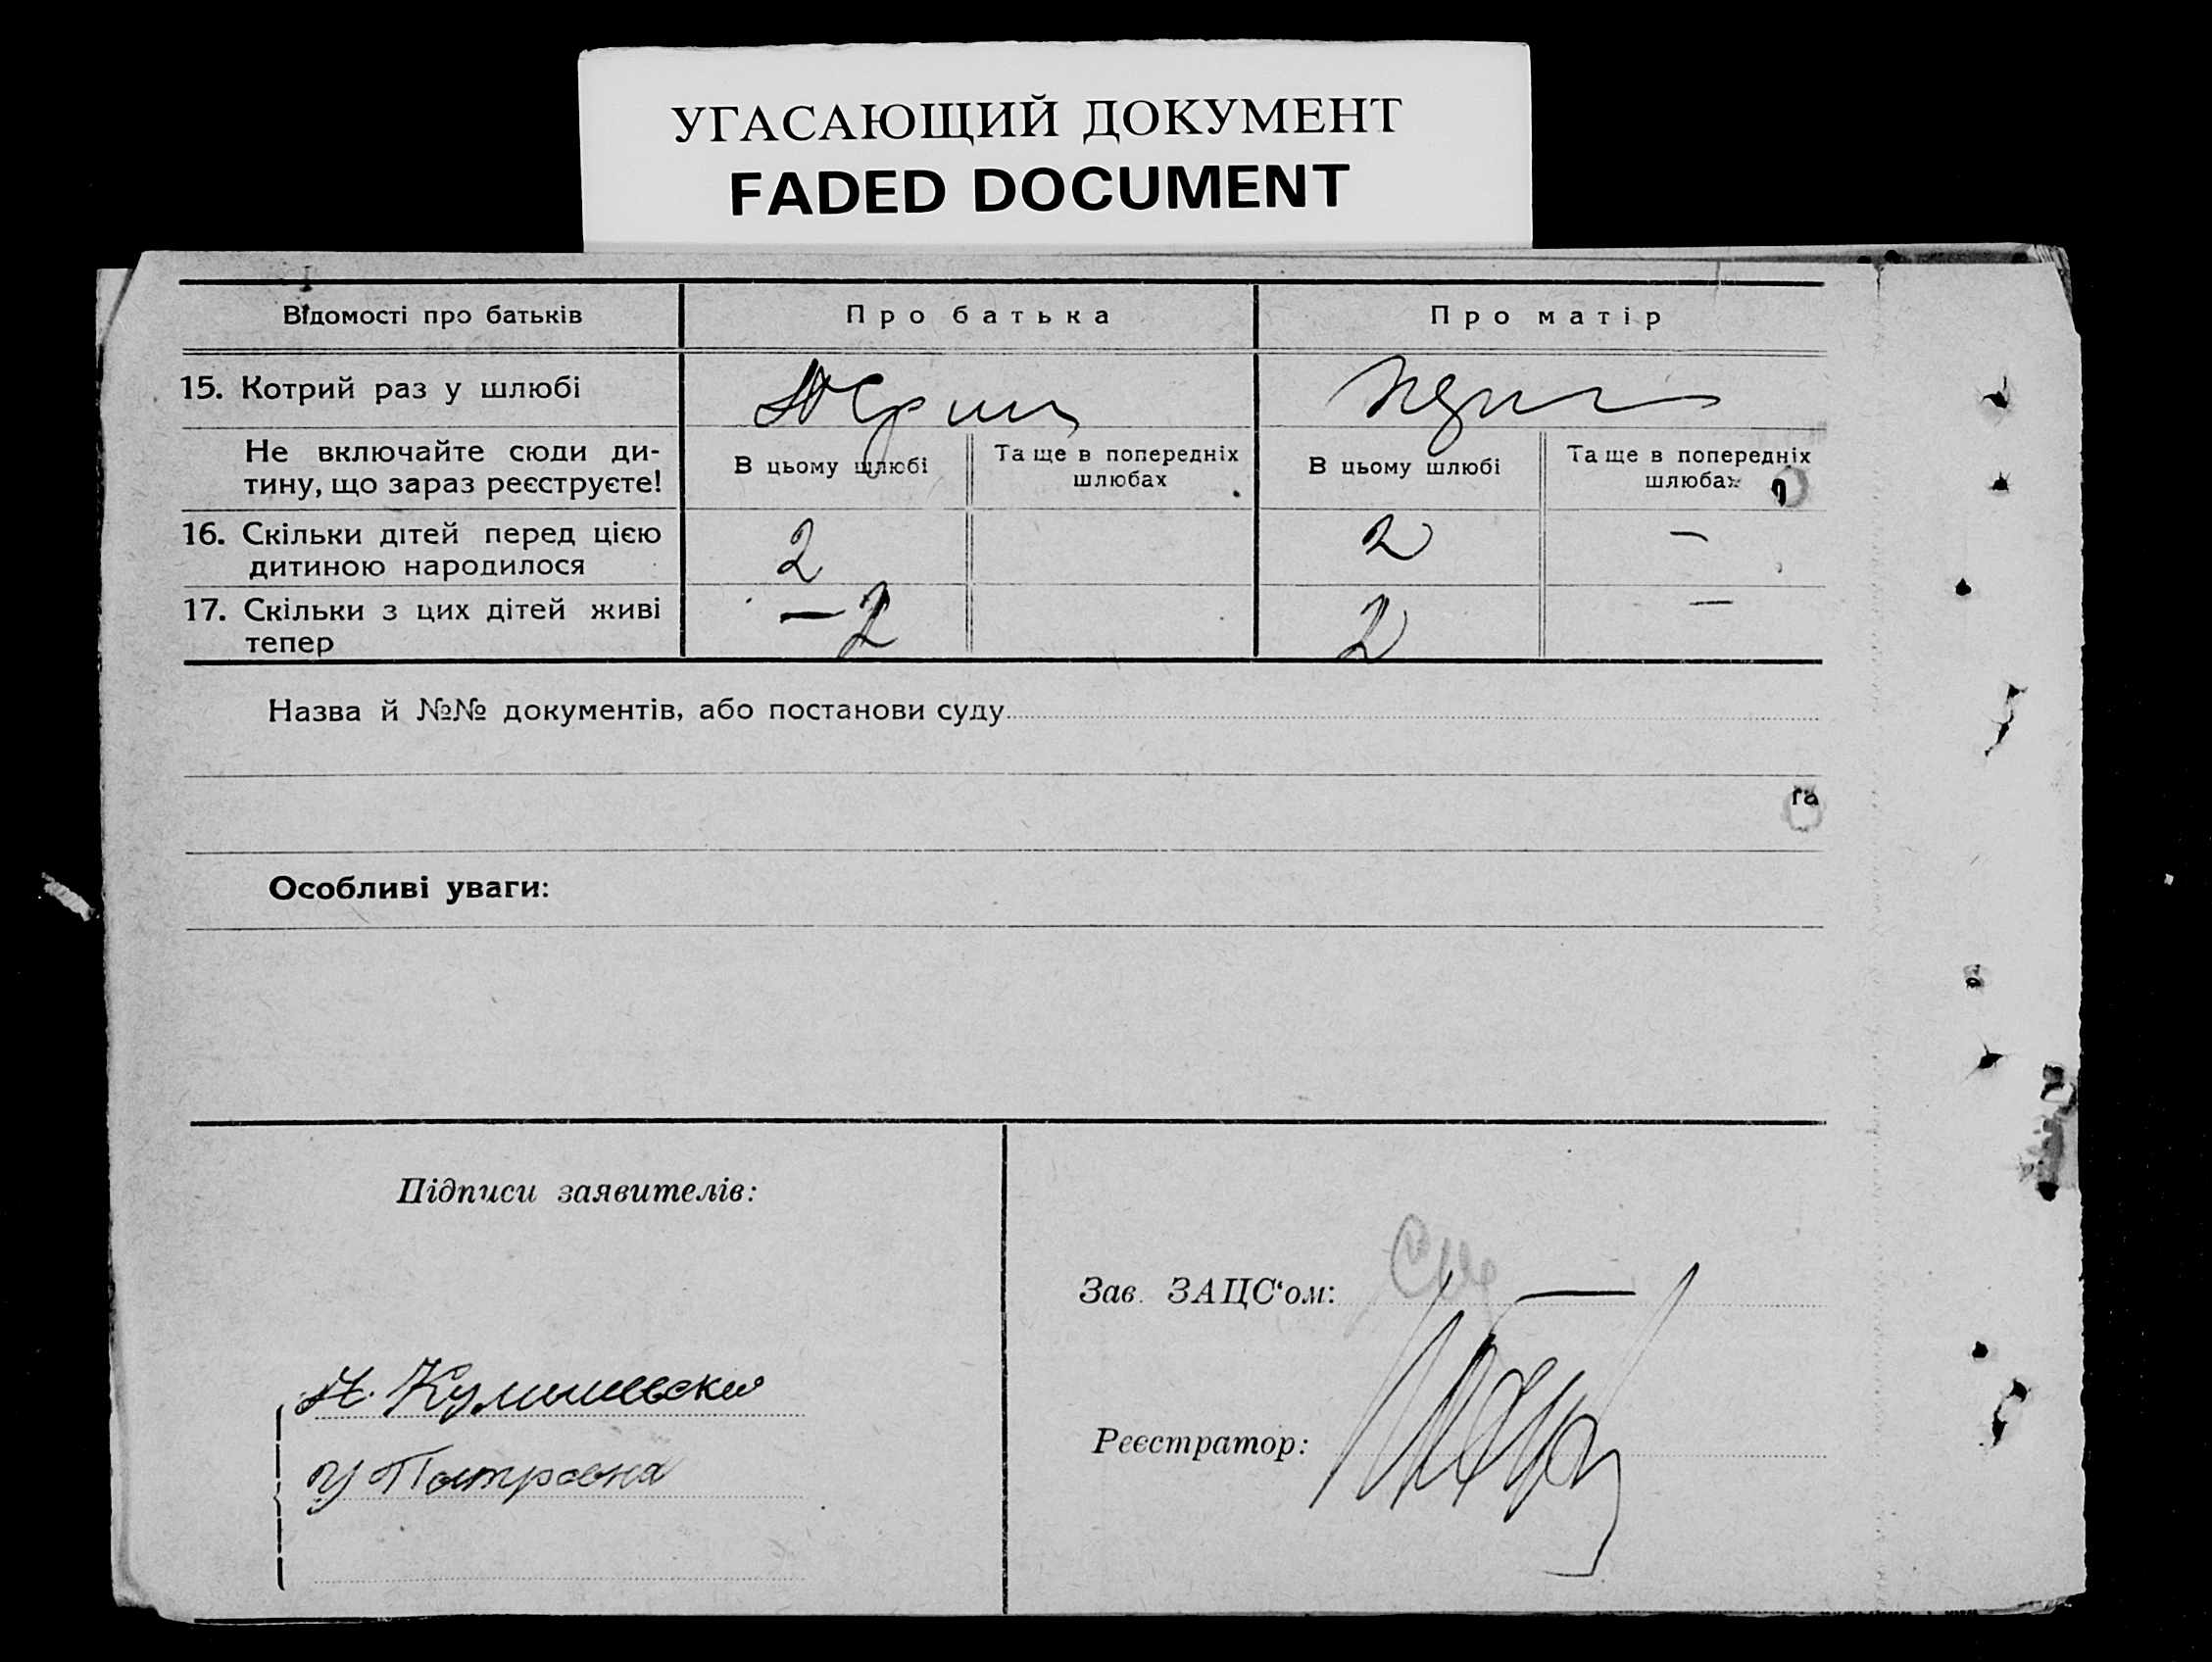 УГАСАЮЩИЙ ДОКУМЕНТ
FADED DOCUMENT
Відомості про батьків
Про батька
Про матір
15. Котрий раз у шлюбі
Не включайте сюди ди-
тину, що зараз реєструєте!
В цьому шлюбі
Та ще в попередніх
шлюбах
В цьому шлюбі
Та ще в попередніх
шлюбах
16. Скільки дітей перед цією
дитиною народилося
2
2
—
17. Скільки з цих дітей живі
тепер
— 2
2
—
Назва й №№ документів, або постанови суду
та
Особливі уваги:
Підписи заявителів:
Зав. ЗАЦС‘ом:
Реєстратор: